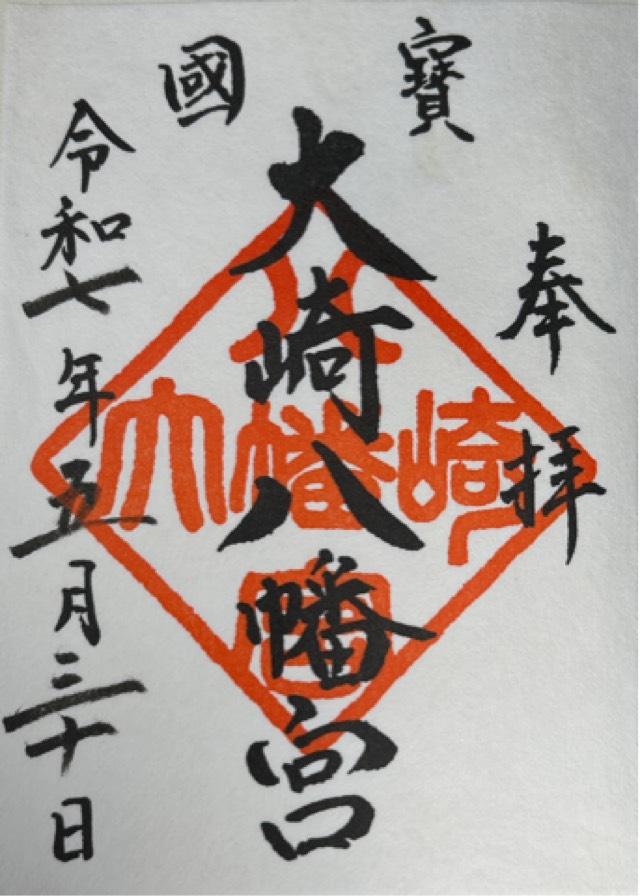 奉拝
國寶
大崎八幡宮
令和七年五月三十日
大崎八幡宮